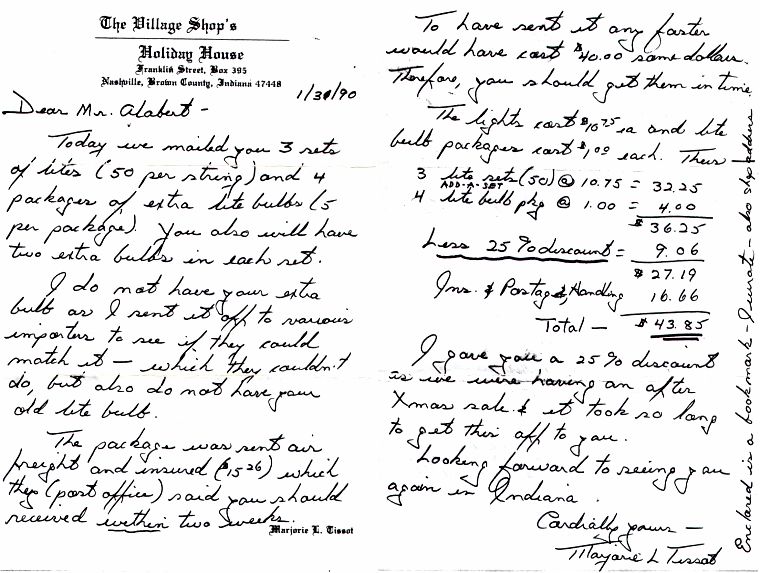 The Village Shop's
Holiday House
Franklin Street, Box 395
Nashville, Brown County, Indiana 47448
1/31/90
Dear Mr. Alabert -
Today we mailed you 3 sets
of lites (50 per string) and 4
packages of extra lite bulbs (5
per package). You also will have
two extra bulbs in each set.
I do not have your extra
bulb as I sent it off to various
importers to see if they could
match it — which they couldn't
do, but also do not have your
old lite bulb.
The package was sent air
freight and insured ($15 26) which
they (post office) said you should
received within two weeks.
Marjorie L. Tissot
To have sent it any faster
would have cost $40.00 some dollars.
Therefore, you should get them in time.
The lights cost $10.75 ea and lite
bulb packages cost $1.00 each. Thus —
3 lite sets (50) @ 10.75 = 32.25
ADD-A-SET
4 lite bulb pkg @ 1.00 = 4.00
$36.25
Less 25% discount = 9.06
$27.19
Ins. & Postage, Handling 16.66
Total — $43.85
I gave you a 25% discount
as we were having an after
Xmas sale & it took so long
to get this off to you.
Looking forward to seeing you
again in Indiana.
Cordially yours —
Marjorie L Tissot
Enclosed is a bookmark - I wrote - also shop address